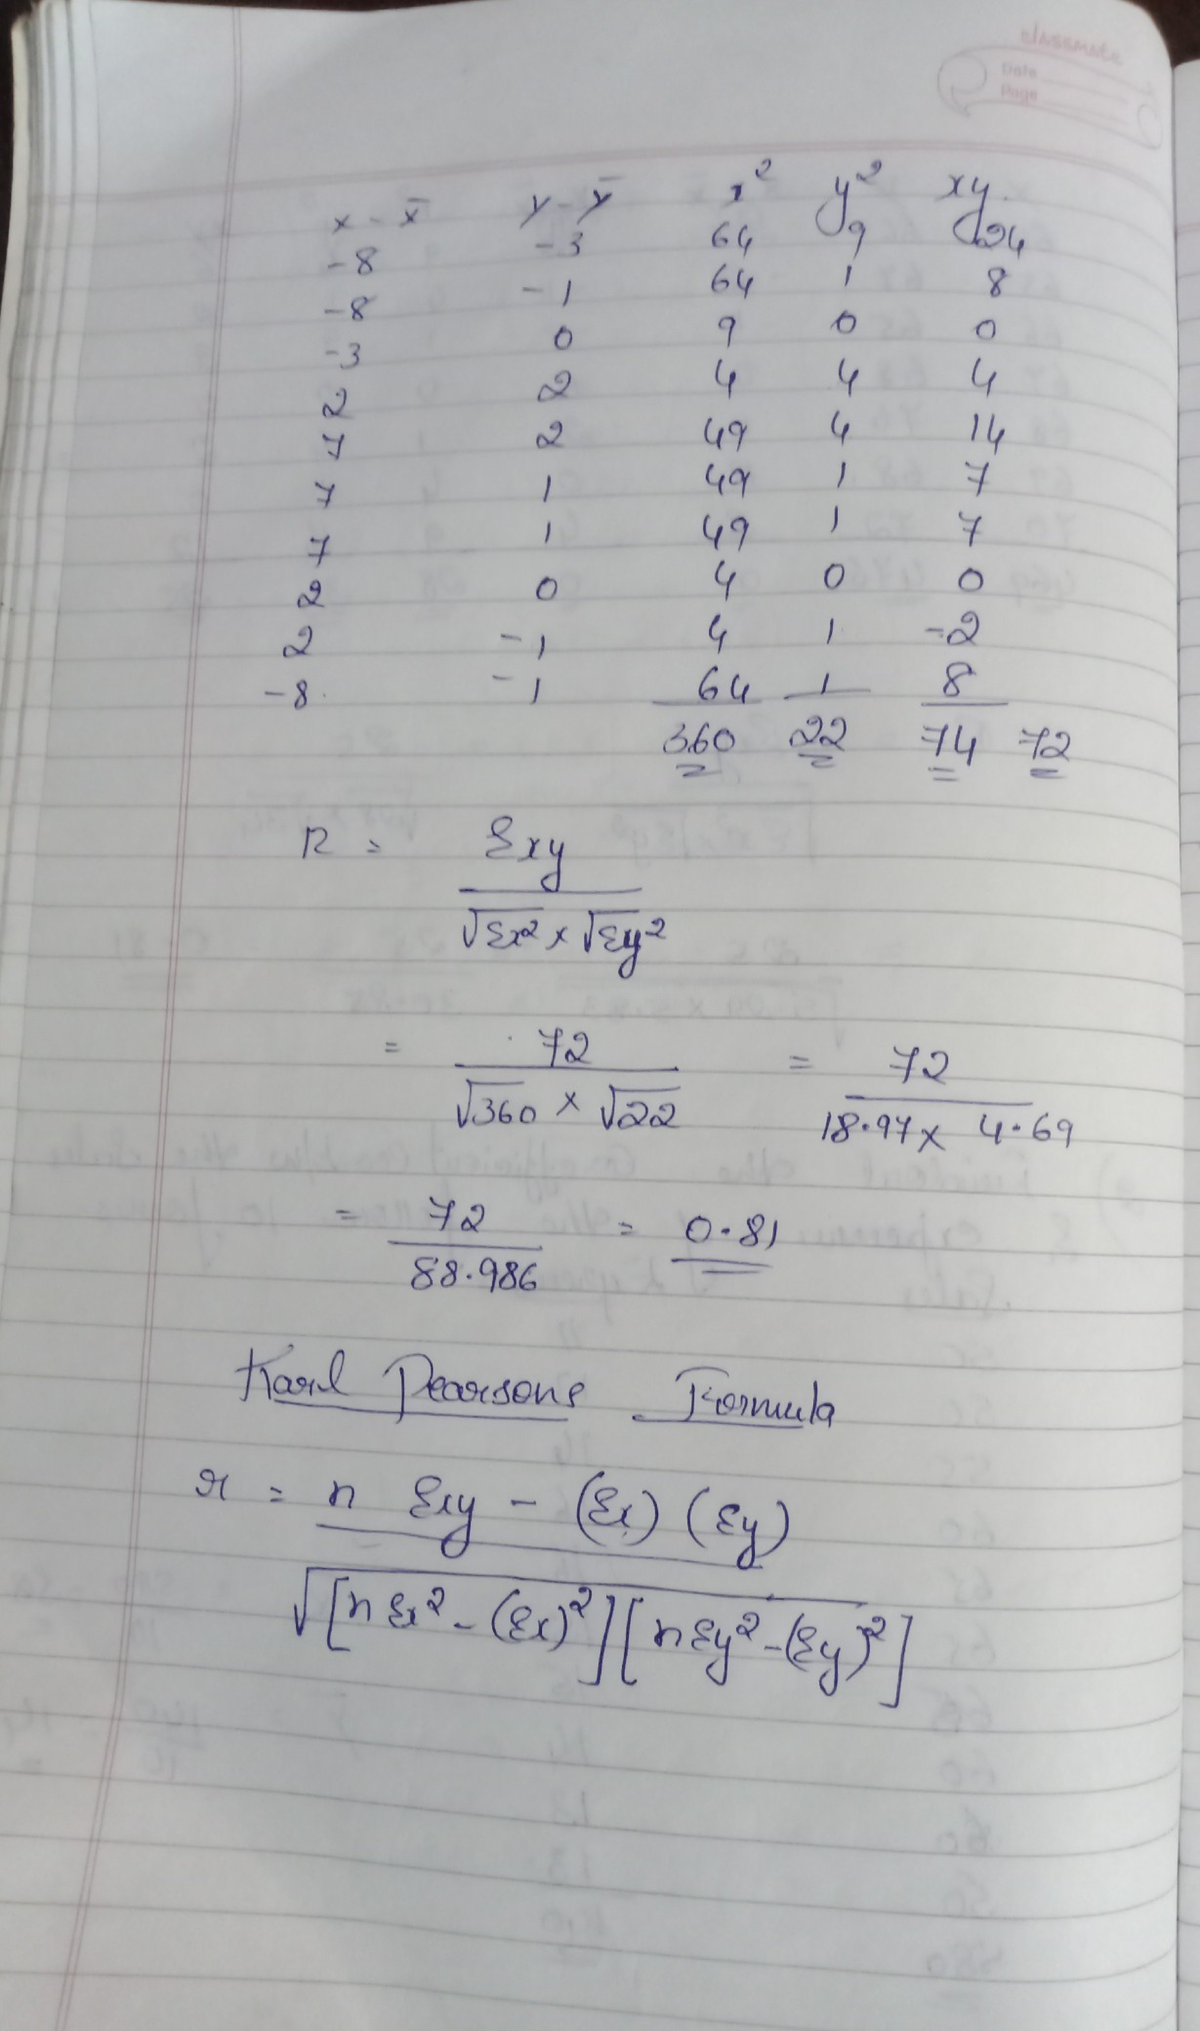 classmate
Date
Page
x - x̄ y - ȳ x² y² xy
-8 -3 64 9 24
-8 -1 64 1 8
-3 0 9 0 0
2 2 4 4 4
7 2 49 4 14
7 1 49 1 7
7 1 49 1 7
2 0 4 0 0
2 -1 4 1 -2
-8 -1 64 1 8
360 22 74 72
R = Σxy
√Σx² × √Σy²
= 72 = 72
√360 × √22 18.97 × 4.69
= 72 = 0.81
88.986
Karl Pearsons Formula
r = n Σxy - (Σx) (Σy)
√[nΣx² - (Σx)²][nΣy² - (Σy)²]